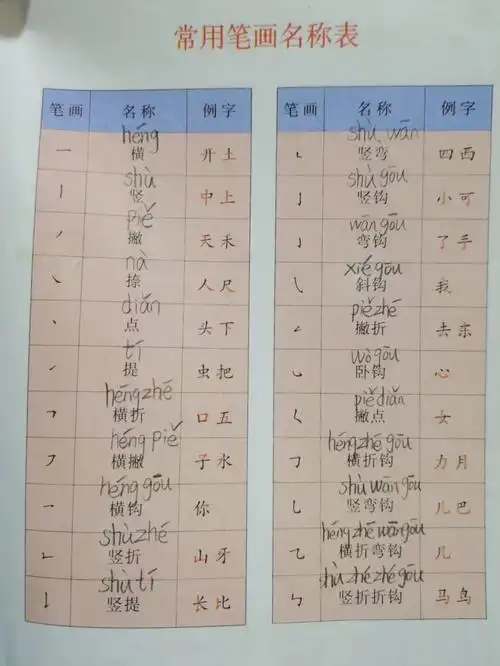 常用笔画名称表
笔画 名称 例字
héng
一 横 开 土
shù
丨 竖 中 上
piě
丿 撇 天 禾
nà
㇏ 捺 人 尺
diǎn
丶 点 头 下
tí
㇀ 提 虫 把
héngzhé
𠃍 横折 口 五
héng piě
㇇ 横撇 子 水
héng gōu
乛 横钩 你
shùzhé
𠃊 竖折 山 牙
shùtí
𠄌 竖提 长 比
笔画 名称 例字
shù wān
㇄ 竖弯 四 西
shù gōu
亅 竖钩 小 可
wān gōu
㇁ 弯钩 了 手
xié gōu
㇂ 斜钩 我
piě zhé
𠃋 撇折 去 东
wò gōu
㇃ 卧钩 心
piě diǎn
𡿨 撇点 女
héng zhé gōu
𠃌 横折钩 力 月
shù wān gōu
乚 竖弯钩 儿 巴
héng zhé wān gōu
㇈ 横折弯钩 几
shù zhé zhé gōu
㇉ 竖折折钩 马 鸟